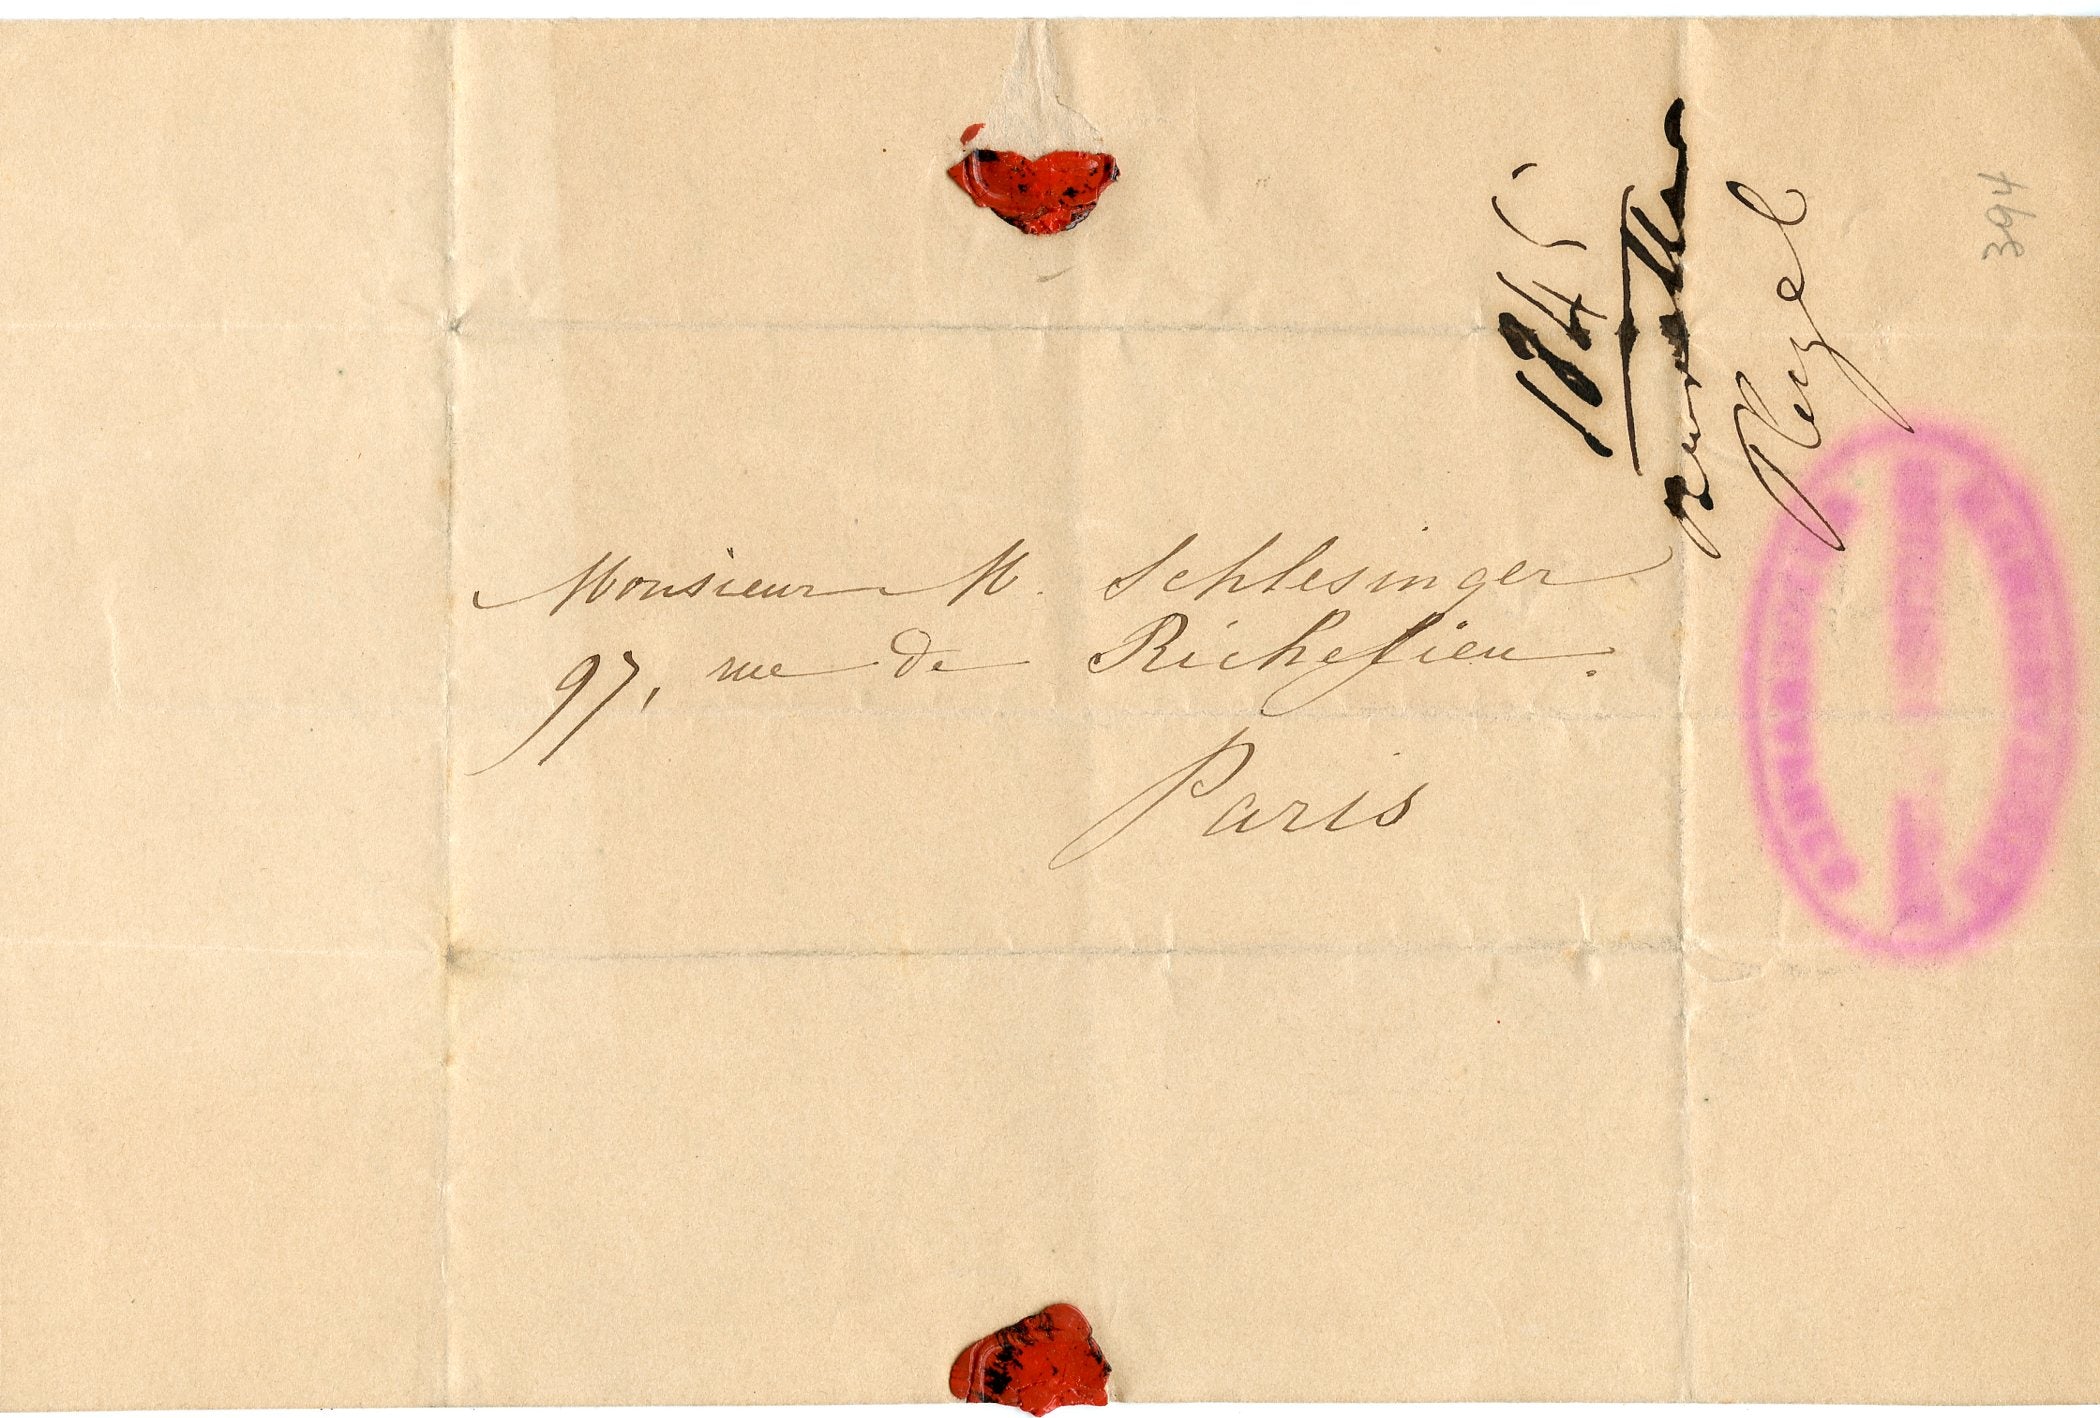 Monsieur M. Schlesinger
97, rue de Richelieu.
Paris
1845
Pleyel
394